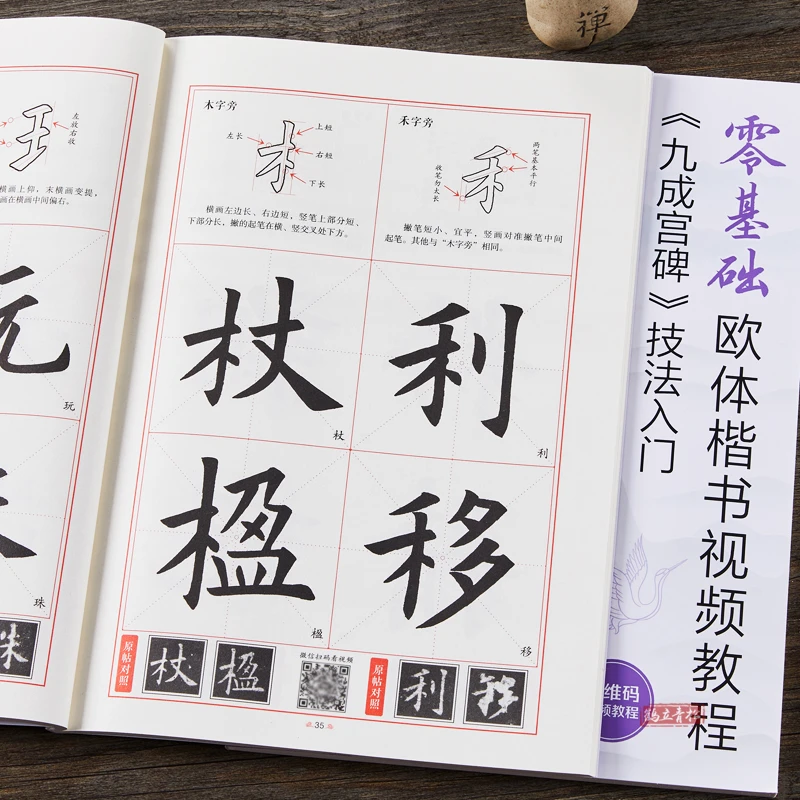 禅
左放右收
横画上仰，末横画变提，
画在横画中间偏右。
玩
珠
木字旁
左长
上短
右短
下长
横画左边长、右边短，竖笔上部分短、
下部分长，撇的起笔在横、竖交叉处下方。
禾字旁
两笔基本平行
收笔勿太长
撇笔短小、宜平，竖画对准撇笔中间
起笔。其他与“木字旁”相同。
杖
杖
利
利
楹
楹
移
移
原帖对照
杖
楹
微信扫码看视频
原帖对照
利
移
35
零基础
欧体楷书视频教程
《九成宫碑》技法入门
维码
频教程
鹤立青松